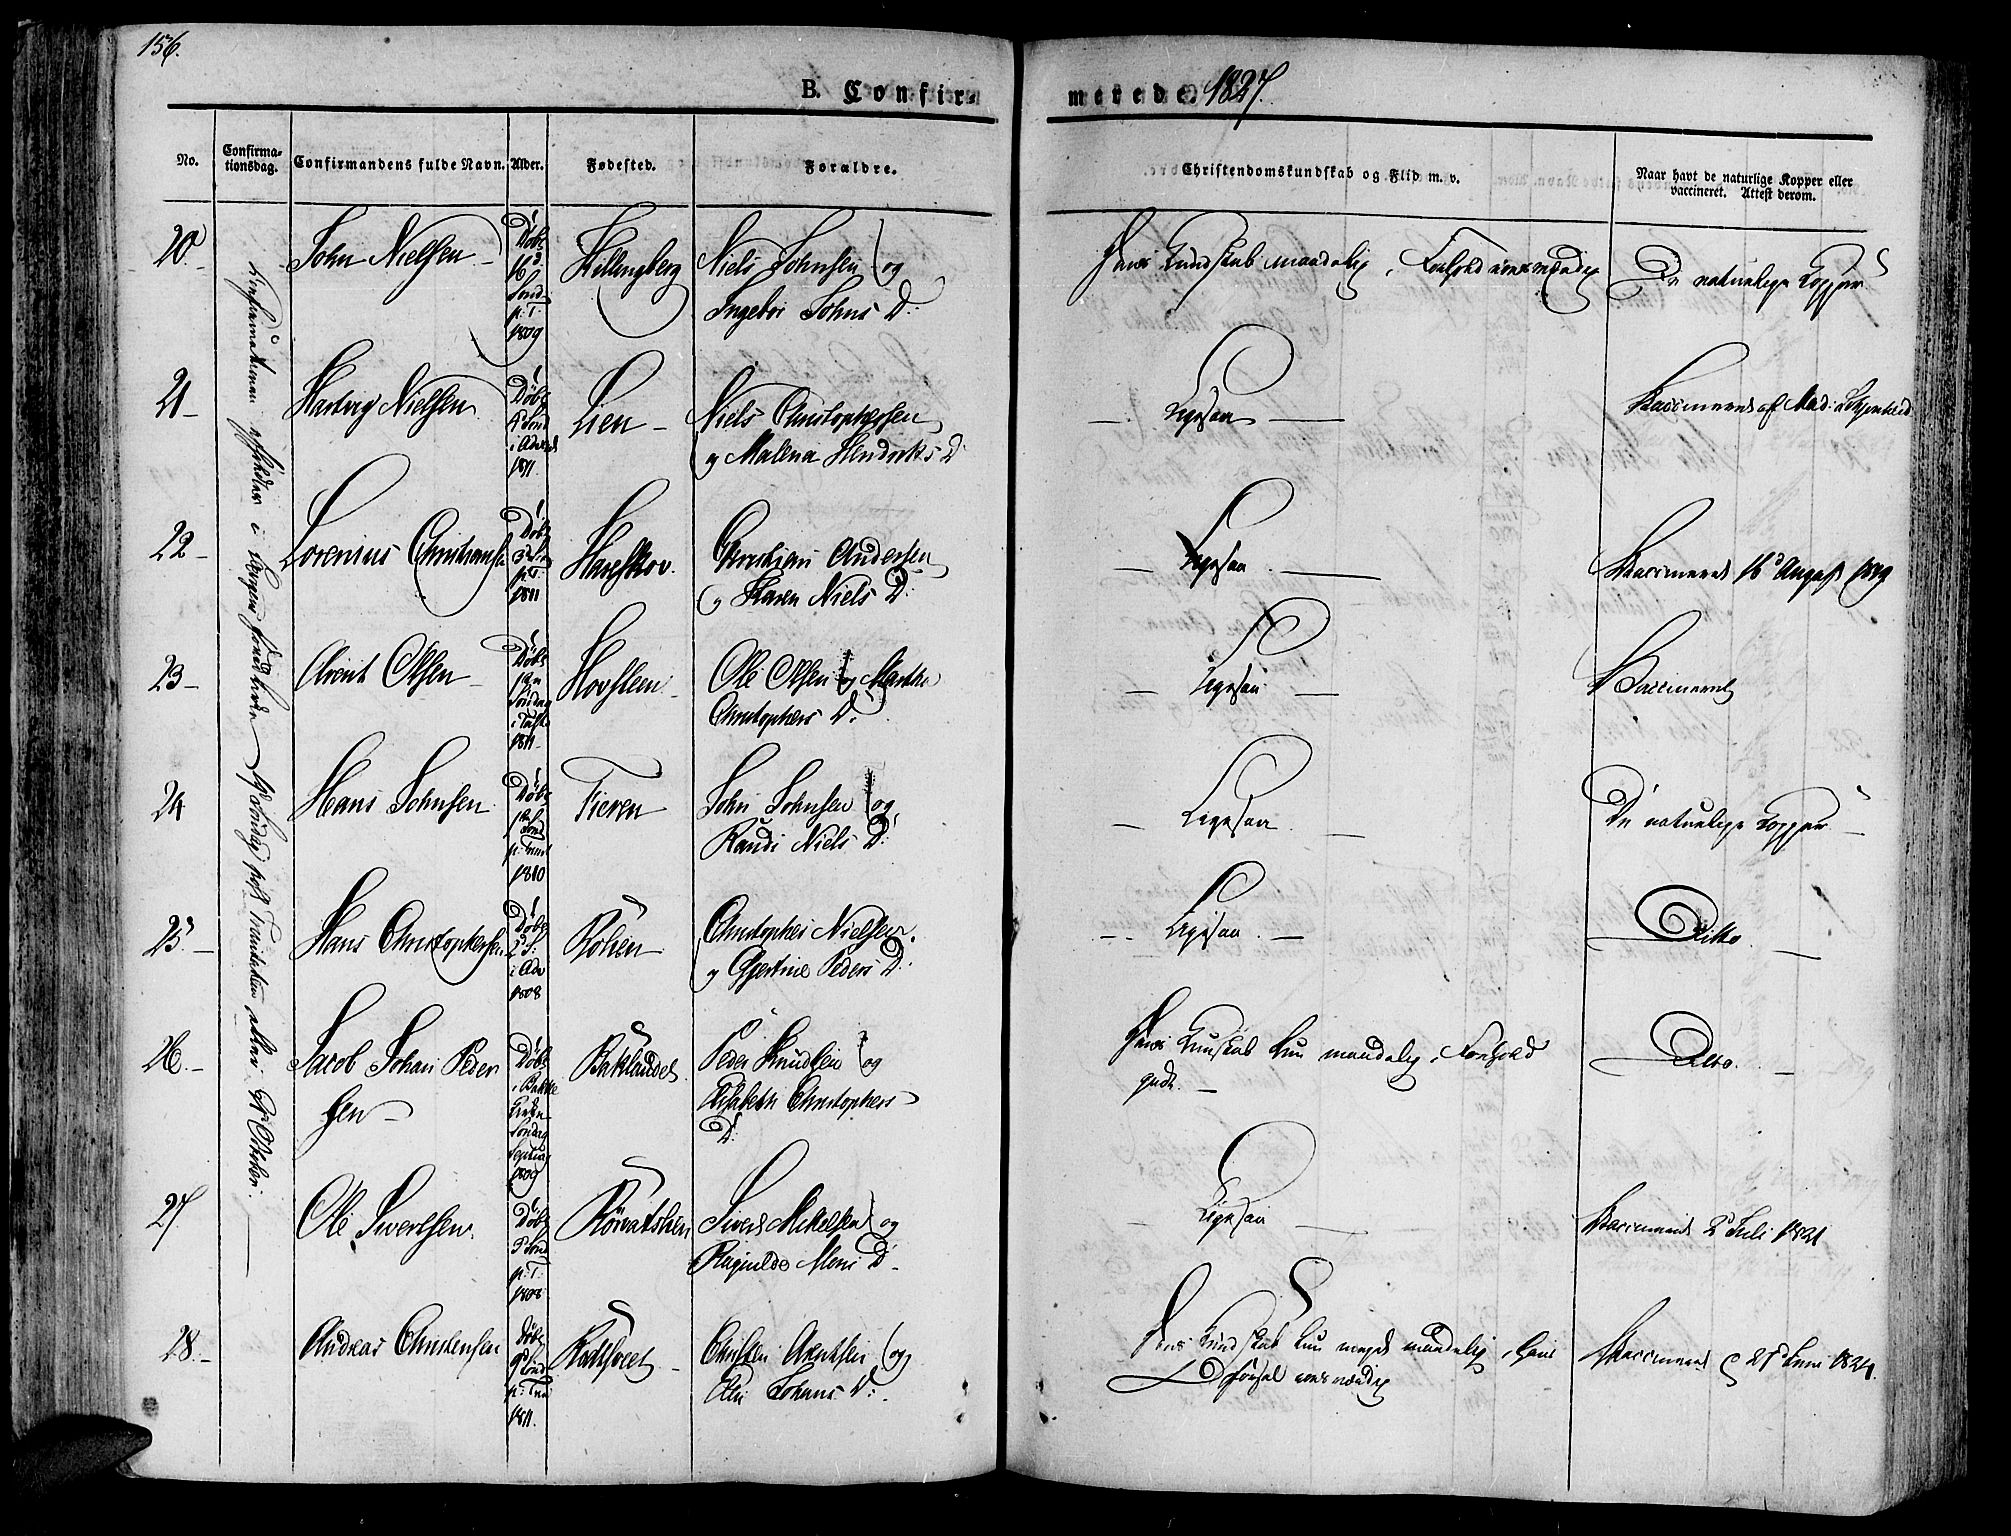 156.
B. Confir-
merede. 1827.
No.
Confirma-
tionsdag.
Confirmandens fulde Navn.
Alder.
Fødested.
Forældre.
Christendomskundskab og Flid m. v.
Naar havt de naturlige Kopper eller
vaccineret. Attest derom.
20.
John Nielsen
Døbt
16d
Sønd
p: T:
1809
Hillingberg
Niels Johnsen og
Ingebor Johns D:
Hans Kundskab maadelig, Forhold
De naturlige Kopper
21
Hartvig Nielsen
Døbt
Sønd
i Advent
1811.
Lien
Niels Christophersen
og Malena Hendriks D
Ligesaa
Vaccineret af Mad:
22
Lorentius Christiansen
Døbt
p. T.
1811
Haugskov.
Christian Andersen
og Karen Niels D:
Ligesaa
Vaccineret 16d August 1819
23
Arent Olsen
Døbt
Søndag
i Faste
1811
Hovsteen
Ole Olsen og Martha
Christophers D.
Ligesaa
Vaccineret
24
Hans Johnsen
Døbt
Sønd
p: Trinit
1810
Fieren
John Johnsen og
Randi Niels D:
Ligesaa
De naturlige Kopper
25.
Hans Christophersen
Døbt
2d S:
i Adv
1808
Røhen
Christopher Nielsen.
og Gjertine Peders D.
Ligesaa.
Ditto
26.
Jacob Johan Peder
sen
Døbt
i Bakke
Kirke
Søndag
Septuag
1809
Baklandet
Peder Knudsen og
Elisabeth Christophers
D:
Hans Kunskab kun maadelig, Forhold
godt.
Ditto.
27
Ole Sivertsen.
Døbt
Sønd
p: T:
1808
Sivert Mikelsen og
Ragnilde Mons D
Ligesaa
Vaccineret 2d Juli 1821
28.
Andreas Christensen
Døbt
Sønd
p: Tri
1811.
Christen Arntsen og
Elen Johans D:
Hans Kundskab kun meget maadelig, hans
Forhold
Vaccineret 27d Juni 1824.
Confirmationen afholdes i Kirken
19 Søndag post Trinitatis 21 October.